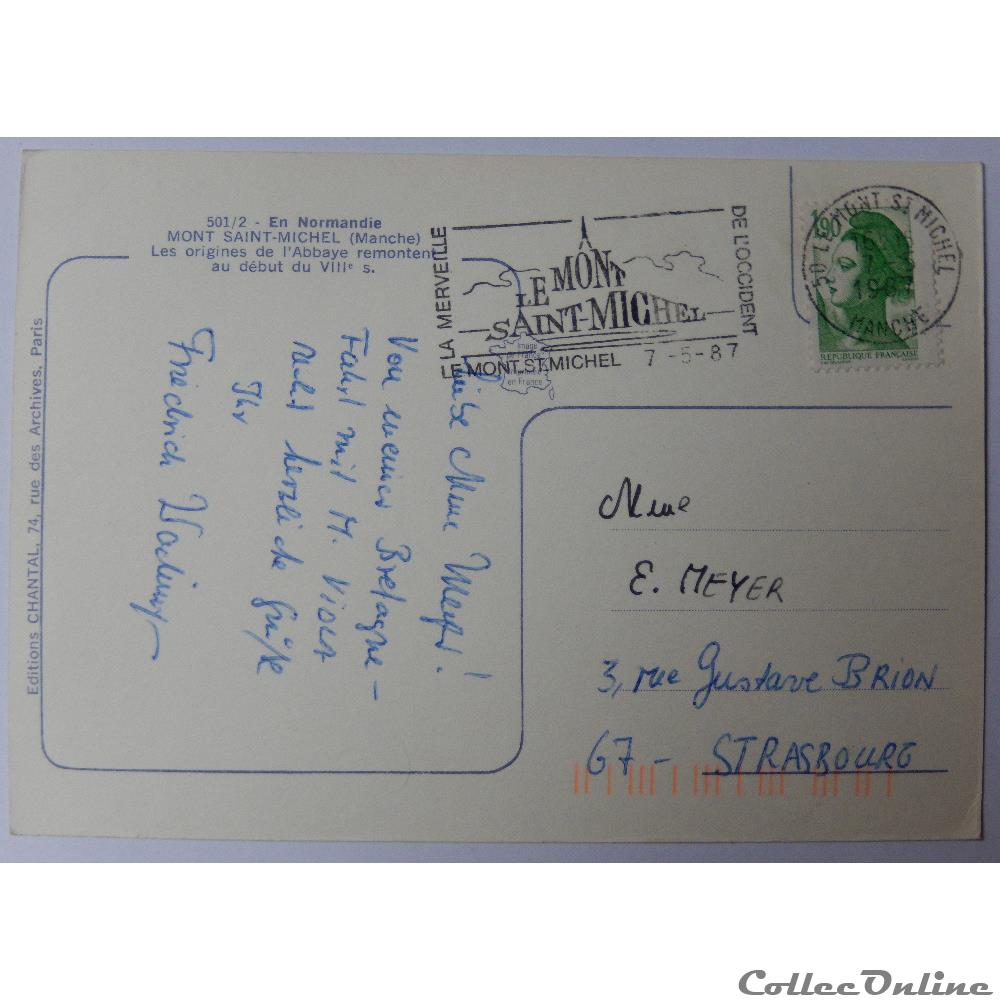 501/2 - En Normandie
MONT SAINT-MICHEL (Manche)
Les origines de l'Abbaye remontent
au début du VIIIe s.
Editions CHANTAL, 74, rue des Archives, Paris
LA MERVEILLE
DE L'OCCIDENT
LE MONT
SAINT-MICHEL
LE MONT ST MICHEL 7-5-87
Image
en France
50 LE MONT ST MICHEL
MANCHE
1,90
REPUBLIQUE FRANÇAISE
Liebe Mme Meyer!
Von meiner Bretagne-
Fahrt mit M. Viout
recht herzliche Grüße
Ihr
Friedrich
Mme
E. MEYER
3, rue Gustave BRION
67 - STRASBOURG
CollecOnline